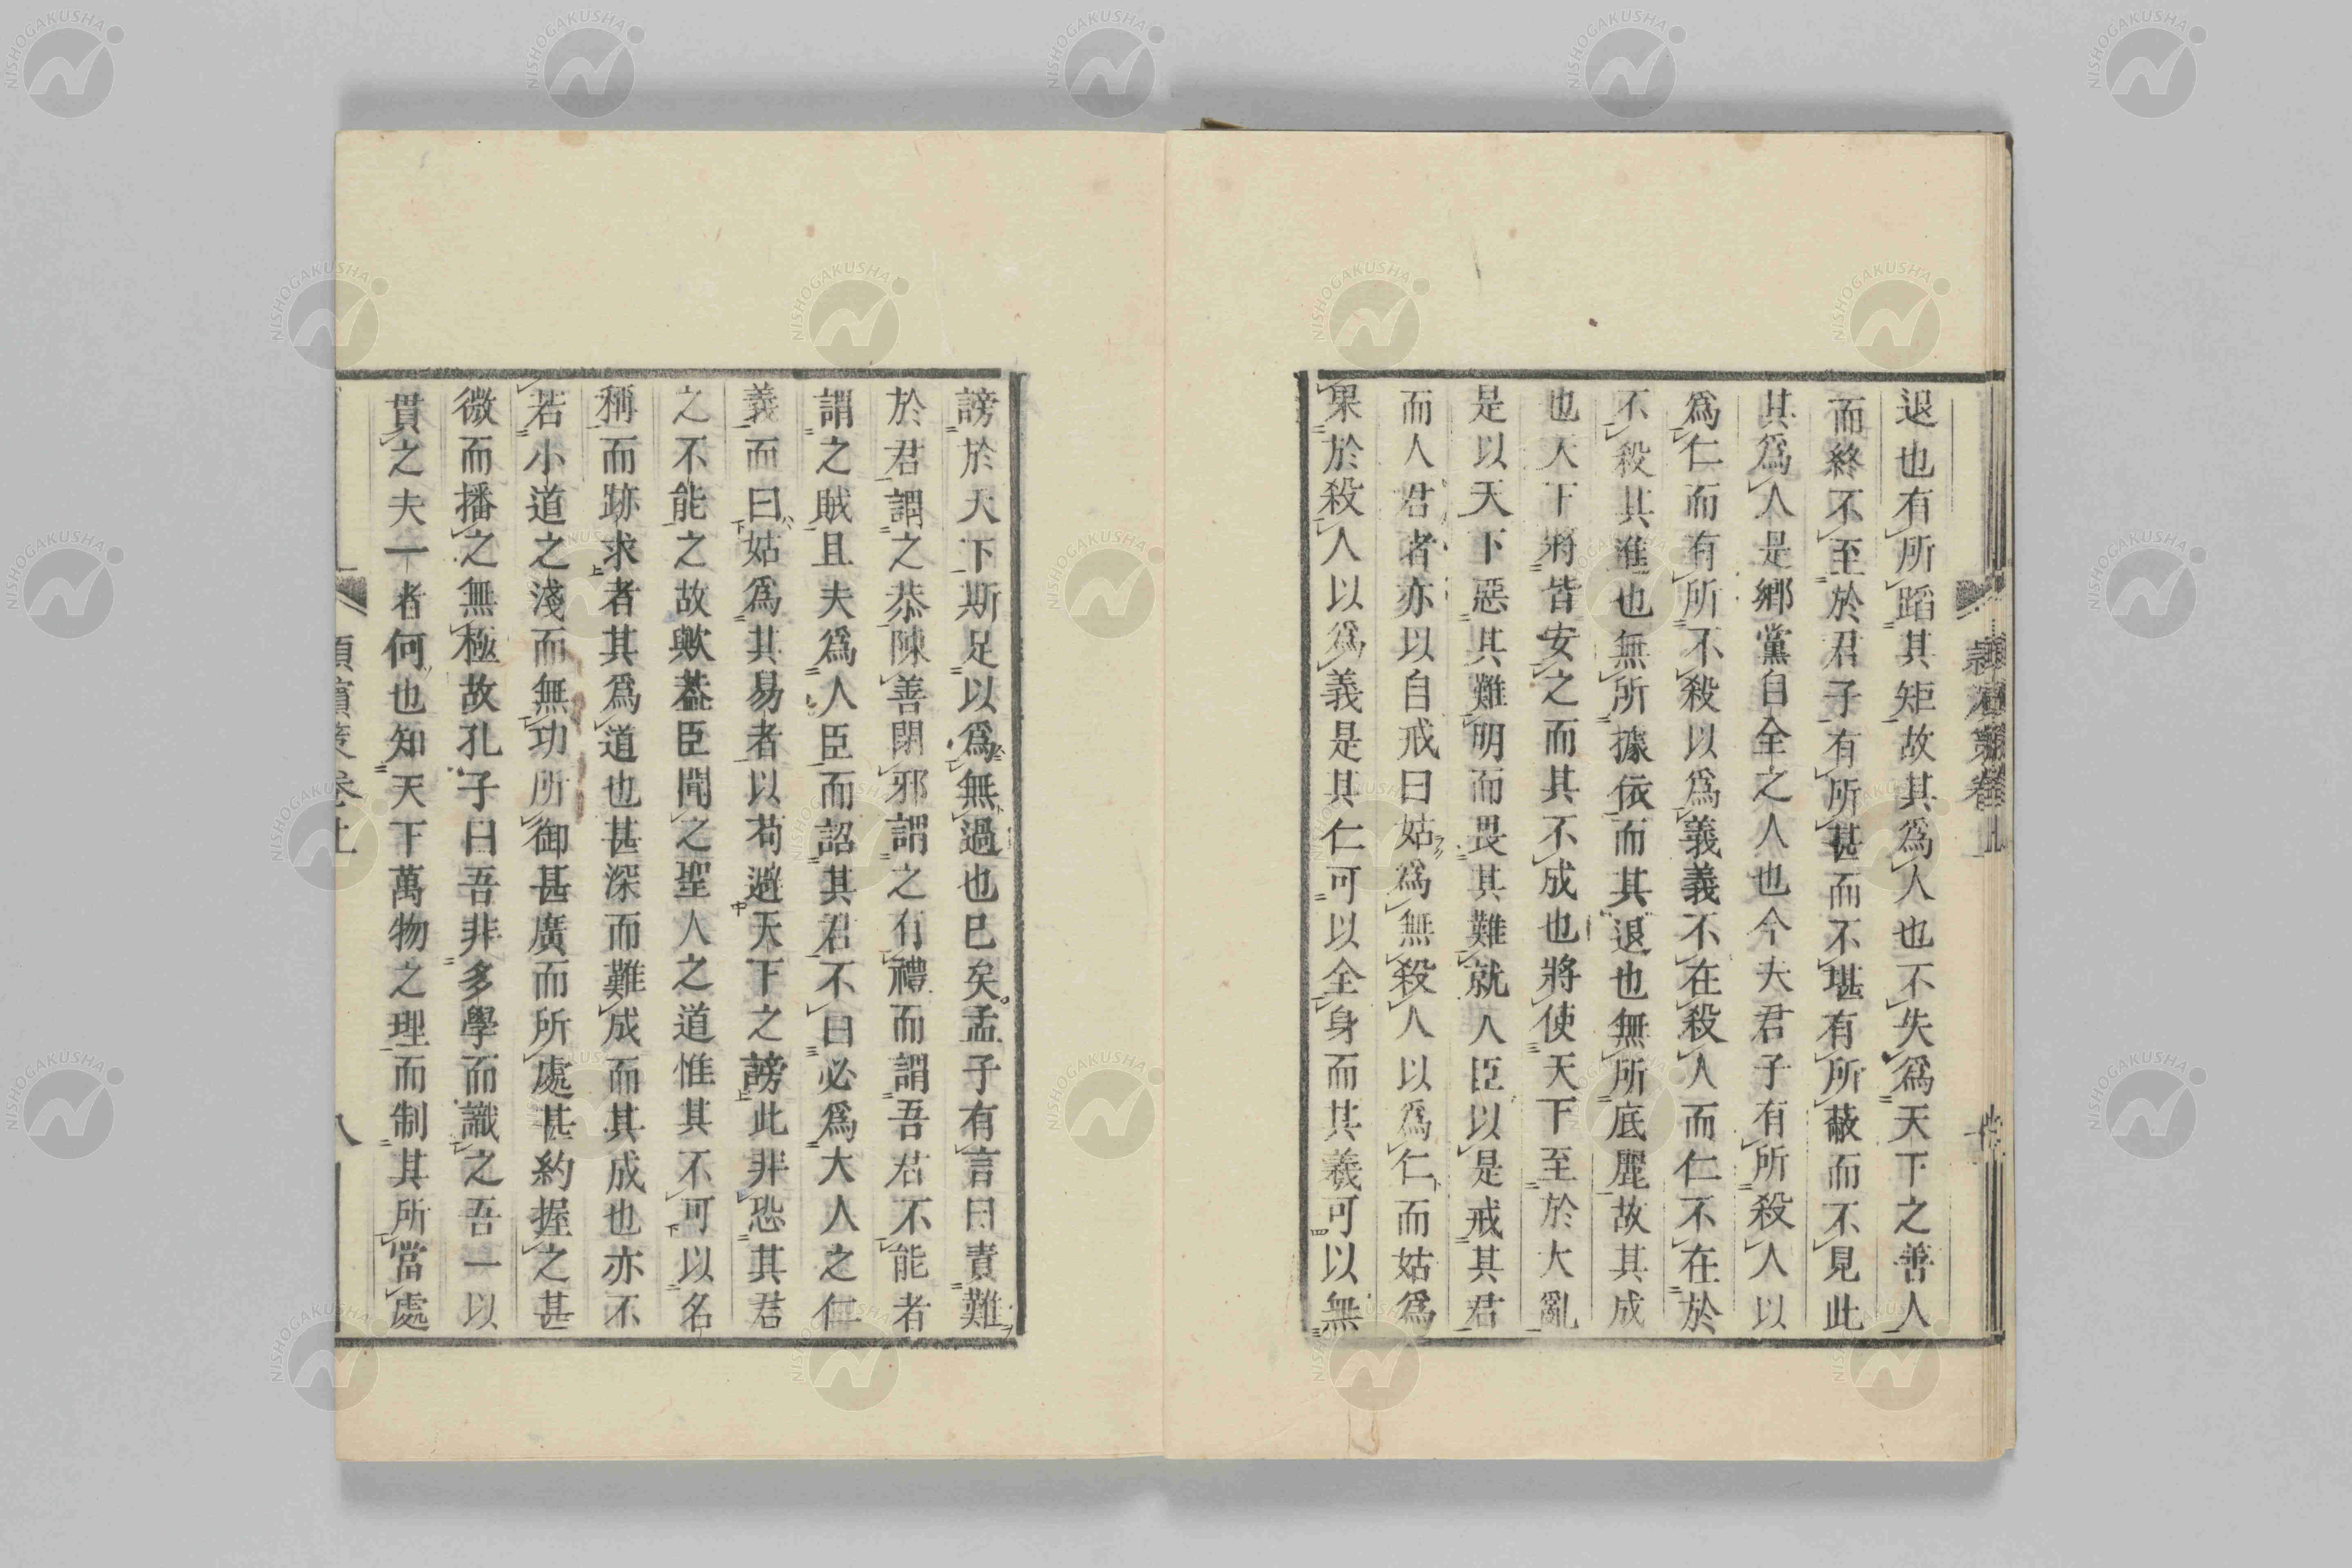 退也有所蹈其矩故其為人也不失為天下之善人
而終不至於君子有所甚而不堪有所蔽而不見此
其為人是鄉黨自全之人也今夫君子有所殺人以
為仁而有所不殺以為義義不在殺人而仁不在於
不殺其進也無所據依而其退也無所底麗故其成
也天下將皆安之而其不成也將使天下至於大亂
是以天下惡其難明而畏其難就人臣以是戒其君
而人君者亦以自戒曰姑為無殺人以為仁而姑為
果於殺人以為義是其仁可以全身而其義可以無
謗於天下斯足以為無過也已矣孟子有言曰責難
於君謂之恭陳善閉邪謂之有禮而謂吾君不能者
謂之賊且夫為人臣而詔其君不曰必為大人之仁
義而曰姑為其易者以苟避天下之謗此非恐其君
之不能之故歟蓋臣聞之聖人之道惟其不可以名
稱而跡求者其為道也甚深而難成而其成也亦不
若小道之淺而無功所御甚廣而所處甚約握之甚
微而播之無極故孔子曰吾非多學而識之吾一以
貫之夫一者何也知天下萬物之理而制其所當處
潁濱策卷上
八
NISHOGAKUSHA